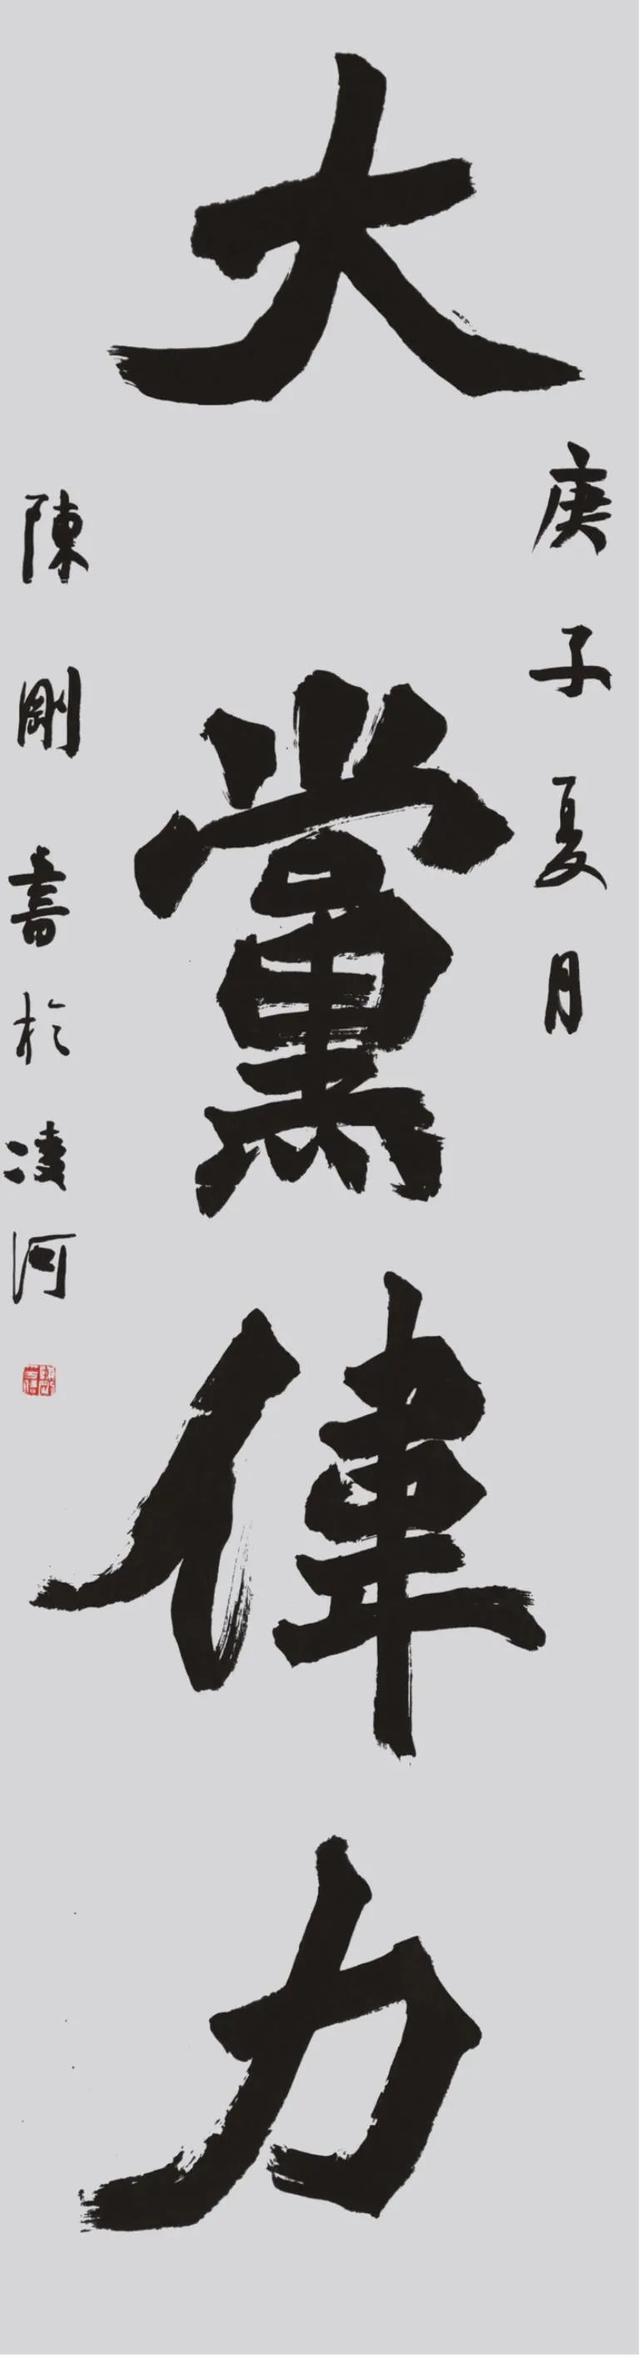 庚子夏月
大黨偉力
陳剛書於凌河